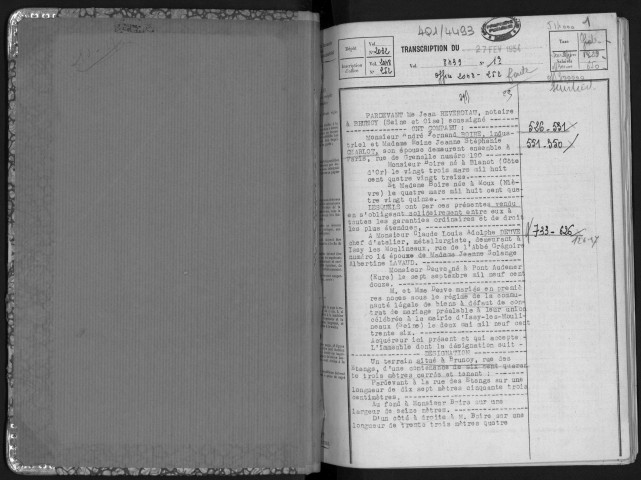 401/4493
1
Dépôt
Vol. 2032
N°
TRANSCRIPTION DU
27 FEV 1954
Taxe
Inscription d'office
Vol.
N° 252
8039 n° 13
PARDEVANT Me Jean REVERDIAU, notaire
à BRUNOY (Seine et Oise) soussigné
ONT COMPARU :
Monsieur André Fernand BOIRE, indus-
triel et Madame Boire Jeanne Stéphanie
CHARLOT, son épouse demeurant ensemble à
Paris, rue de Grenelle numéro
Monsieur Boire né à Blanot (Côte
d'Or) le vingt trois mars mil huit
cent quatre vingt treize.
Et Madame Boire née à Moux (Niè-
vre) le quatre mars mil huit cent qua-
tre vingt quinze.
LESQUELS ont par ces présentes vendu
en s'obligeant solidairement entre eux à
toutes les garanties ordinaires et de droit
les plus étendues.
A Monsieur Claude Louis Adolphe DEUVE
chef d'atelier, métallurgiste, demeurant à
Issy les Moulineaux, rue de l'Abbé Grégoire
numéro 14 époux de Madame Jeanne Solange
Albertine LAVAUD.
Monsieur Deuve né à Pont Audemer
(Eure) le sept septembre mil neuf cent
douze.
M. et Mme Deuve mariés en premiè-
res noces sous le régime de la commu-
nauté légale de biens à défaut de con-
trat de mariage préalable à leur union
célébrée à la mairie d'Issy-les-Mouli-
neaux (Seine) le deux mai mil neuf cent
trente six.
Acquéreur ici présent et qui accepte
L'immeuble dont la désignation suit -
DESIGNATION
Un terrain situé à Brunoy, rue des
Etangs, d'une contenance de six cent quaran
te trois mètres carrés et tenant :
Pardevant à la rue des Etangs sur une
longueur de dix sept mètres cinquante trois
centimètres.
Au fond à Monsieur Boire sur une
largeur de seize mètres.
D'un côté à droite à M. Boire sur une
longueur de trente trois mètres quatre
526-591
551-350
733-636